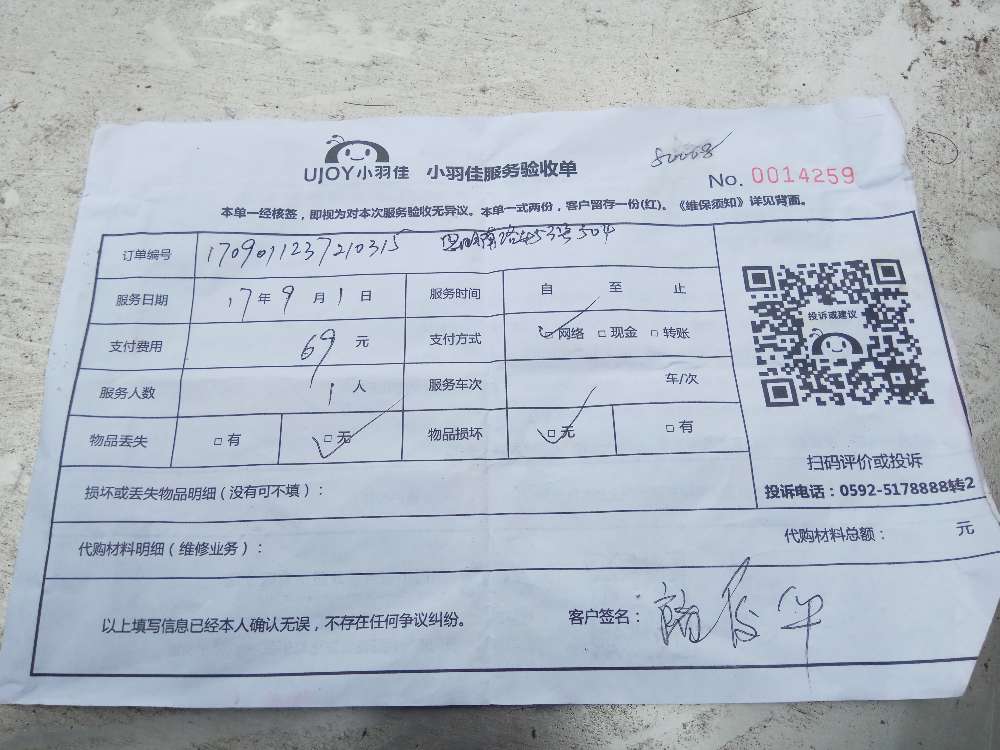 80008
UJOY小羽佳 小羽佳服务验收单
No. 0014259
本单一经核签，即视为对本次服务验收无异议。本单一式两份，客户留存一份(红)。《维保须知》详见背面。
订单编号 1709011237210315 504
服务日期 17 年 9 月 1 日 服务时间 自 至 止
支付费用 69 元 支付方式 □网络 □现金 □转账
服务人数 1 人 服务车次 车/次
物品丢失 □有 □无 物品损坏 □无 □有
投诉或建议
扫码评价或投诉
投诉电话：0592-5178888转2
损坏或丢失物品明细（没有可不填）：
代购材料明细（维修业务）： 代购材料总额： 元
以上填写信息已经本人确认无误，不存在任何争议纠纷。 客户签名：